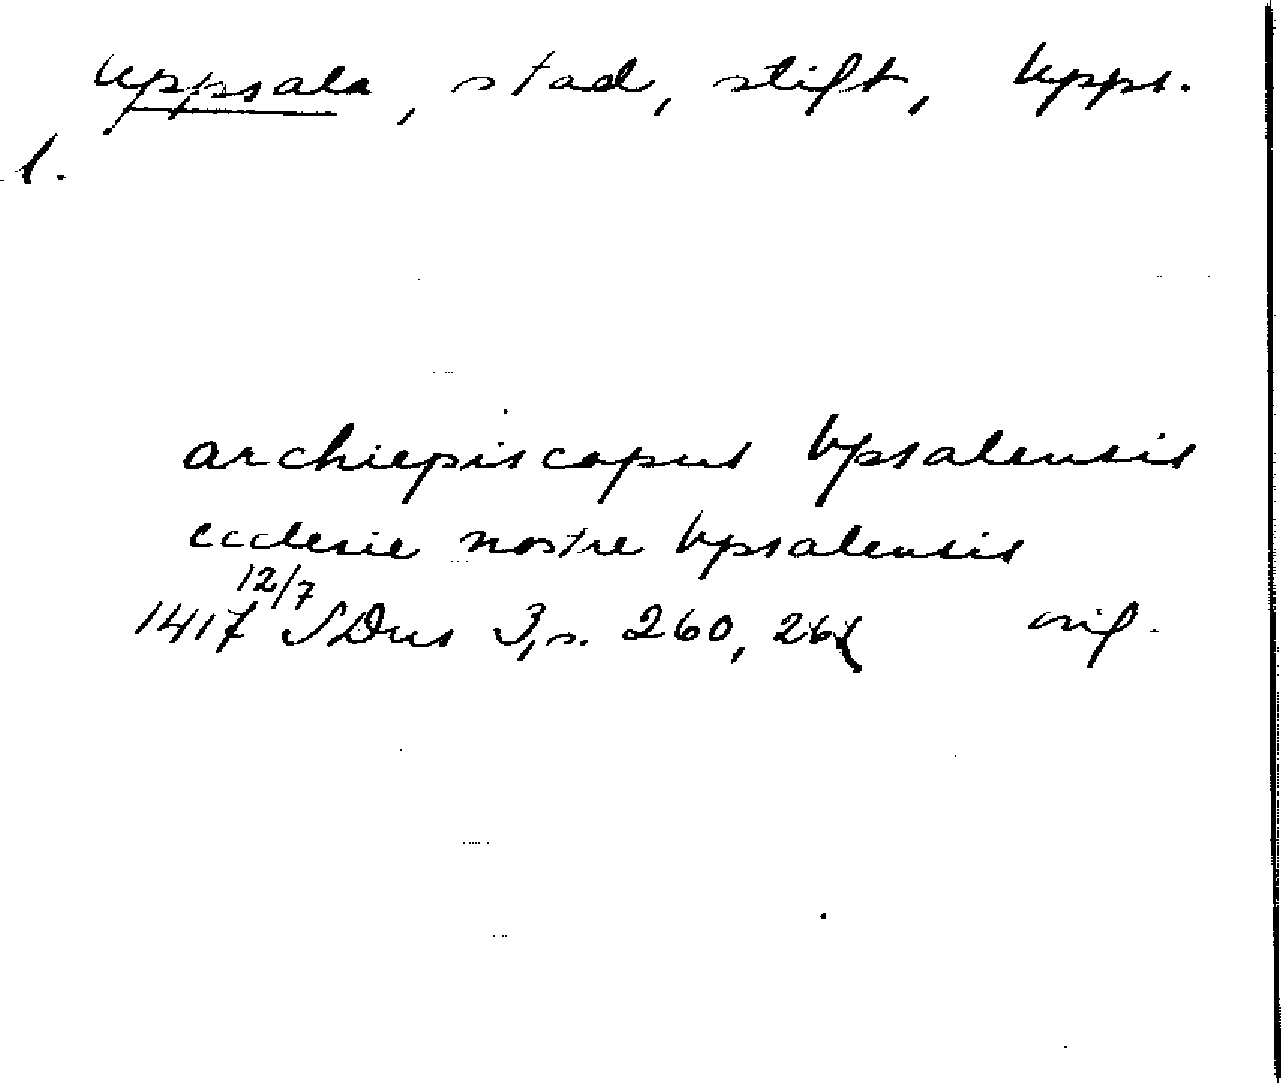 Uppsala, stad, stift, Uppl.
1.
archiepiscopus Vpsalensis
ecclesie nostre Vpsalensis
12/7
1417 SDns 3, s. 260, 261 orig.